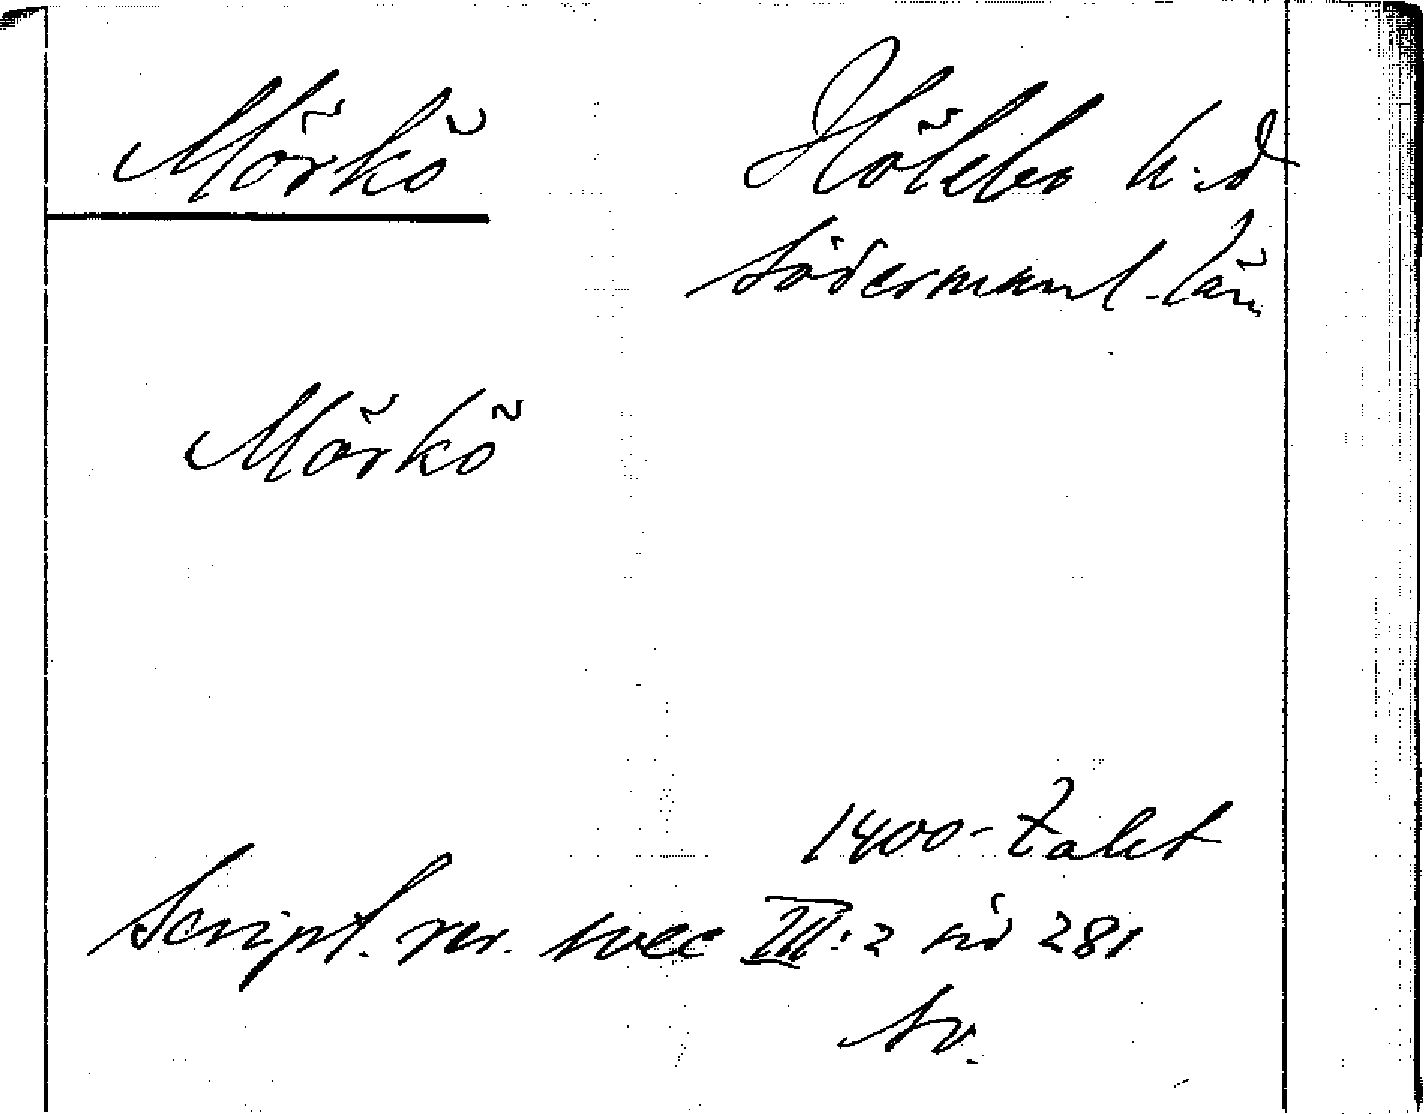 Mörkö Hölebo h:d
Södermanl. län
Mörkö
1400-talet
Script. rer. svec III:2 sid 281
Sv.